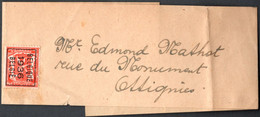 BELGIQUE
1936
BELGIË
Mr. Edmond Mathot
rue du Monument
Ottignies